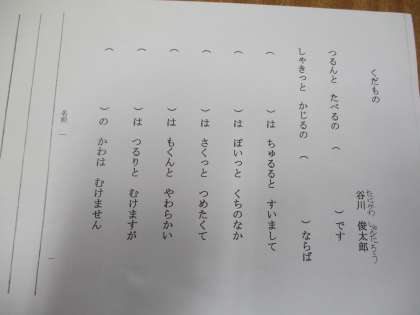 くだもの
谷川 俊太郎
たにかわ しゅんたろう
つるんと たべるの ( )です
しゃきっと かじるの ( )ならば
( )は ちゅるると すいまして
( )は ぽいっと くちのなか
( )は さくっと つめたくて
( )は もくんと やわらかい
( )は つるりと むけますが
( )の かわは むけません
名前